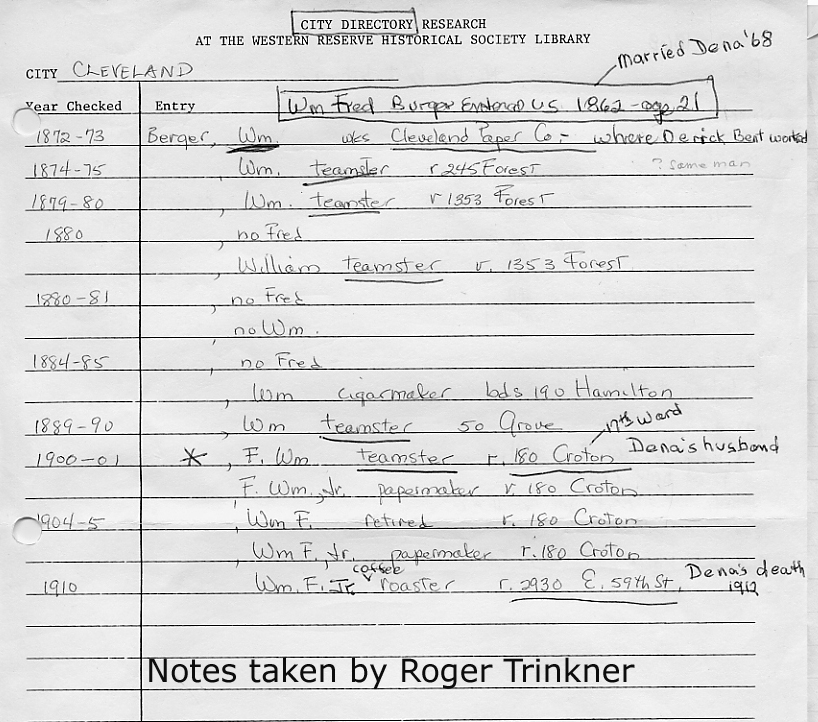 CITY DIRECTORY RESEARCH
AT THE WESTERN RESERVE HISTORICAL SOCIETY LIBRARY
married Dena '68
CITY CLEVELAND
Year Checked Entry Wm Fred Burger Entered US 1862 - age 21
1872-73 Berger, Wm. wks Cleveland Paper Co. - where Derick Bent worked
1874-75 , Wm. teamster r 245 Forest ? same man
1879-80 , Wm. teamster r 1353 Forest
1880 , no Fred
, William teamster r. 1353 Forest
1880-81 , no Fred
, no Wm.
1884-85 , no Fred
, Wm cigarmaker bds 190 Hamilton
1889-90 , Wm teamster 50 Grove
17th Ward
1900-01 * , F. Wm teamster r. 180 Croton Dena's husband
, F. Wm., Jr. papermaker r. 180 Croton
1904-5 , Wm F. retired r. 180 Croton
, Wm F., Jr. papermaker r. 180 Croton
1910 Wm. F. Jr. coffee roaster r. 2930 E. 59th St. Dena's death
1912
Notes taken by Roger Trinkner